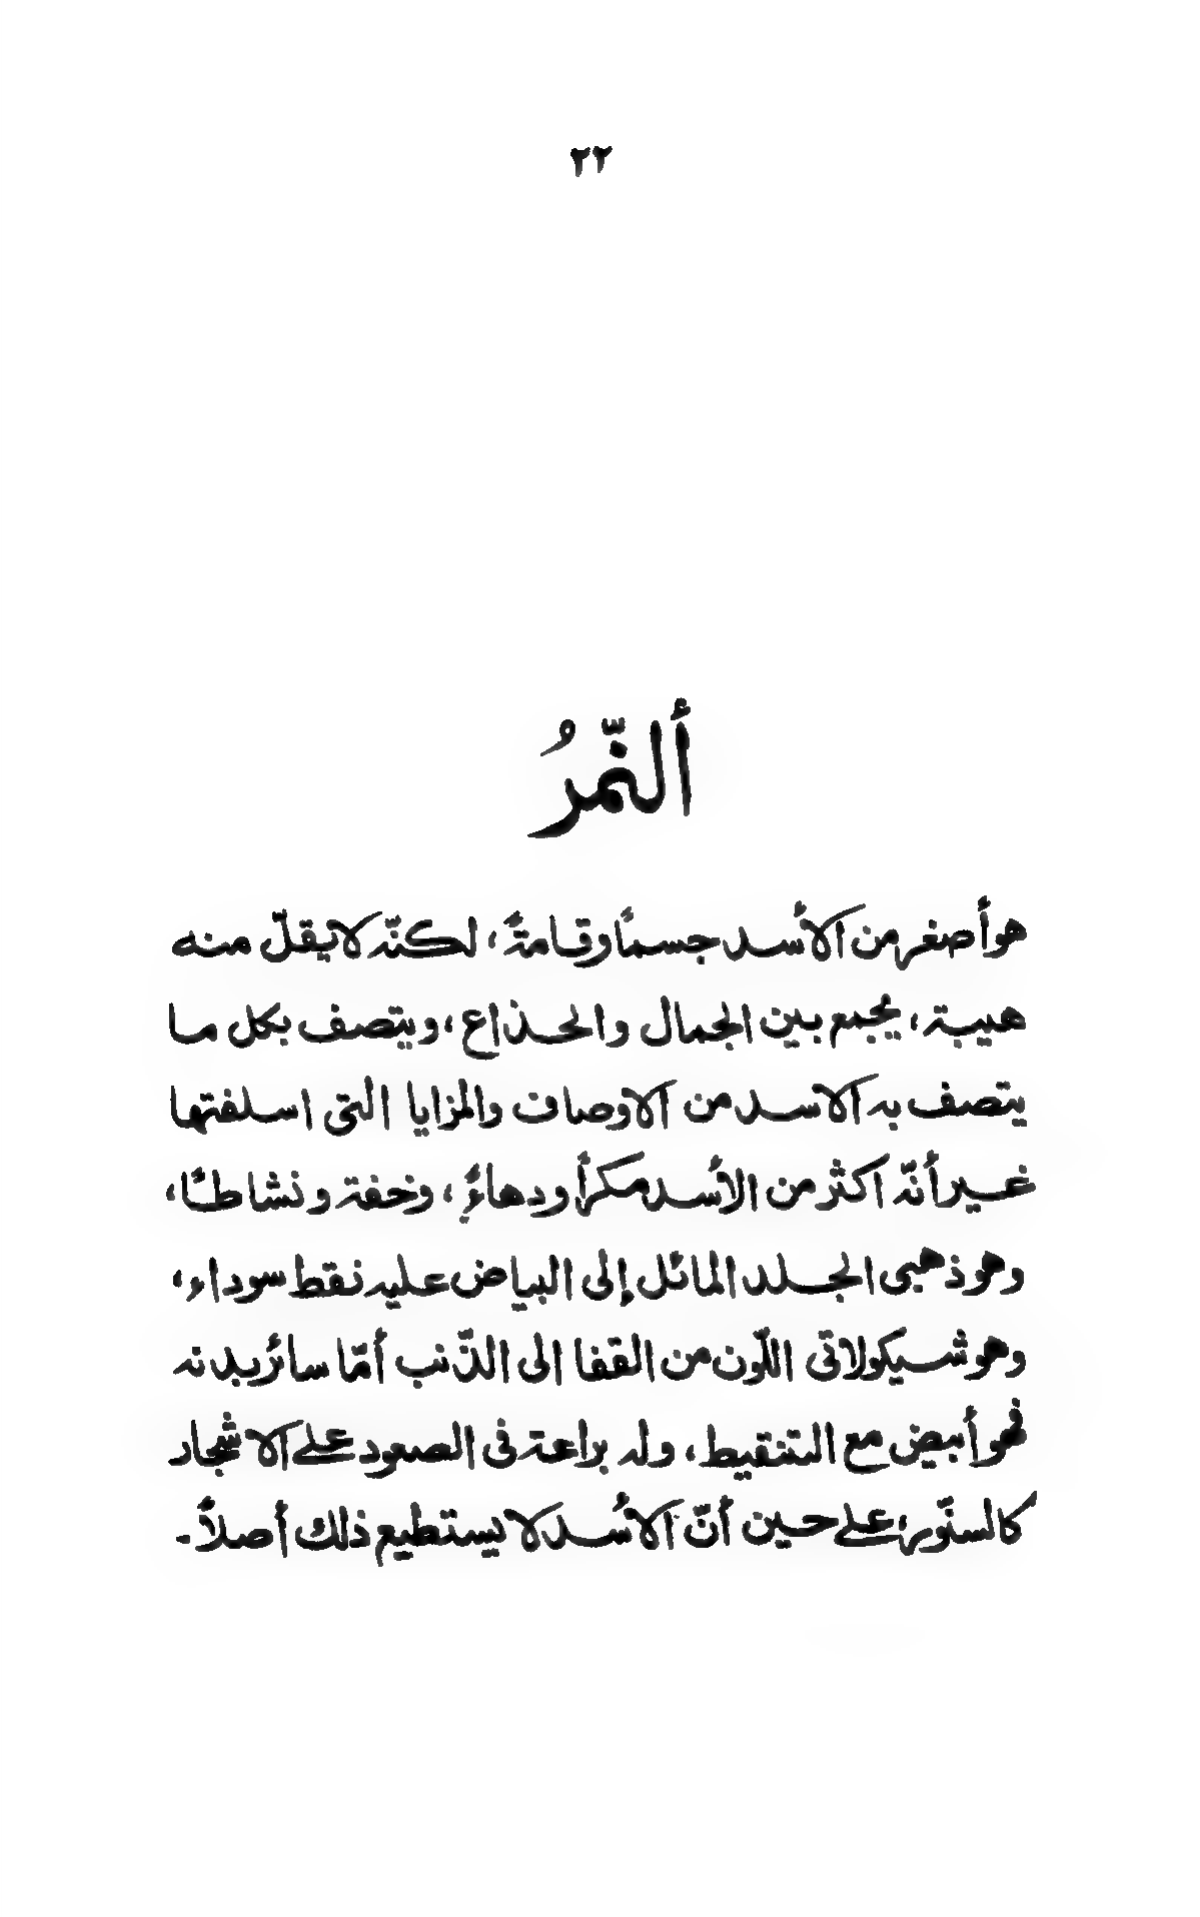 ٢٢
ألنّمرُ
هو أصغر من الأسد جسماً وقامةً، لكنّه لا يقلّ منه
هيبة، يجمع بين الجمال والحذاع، ويتصف بكل ما
يتصف به الاسد من الاوصاف والمزايا التى اسلفتها
غير أنّه اكثر من الأسد مكرأ ودهاءً، وخفة ونشاطًا،
وهو ذهبى الجلد المائل إلى البياض عليه نقط سوداء،
وهو شيكولاتى اللّون من القفا الى الذّنب أمّا سائر بدنه
فهو أبيض مع التنقيط، وله براعة فى الصعود على الاشجار
كالسنّور، على حين أنّ الأسد لا يستطيع ذلك أصلاً.